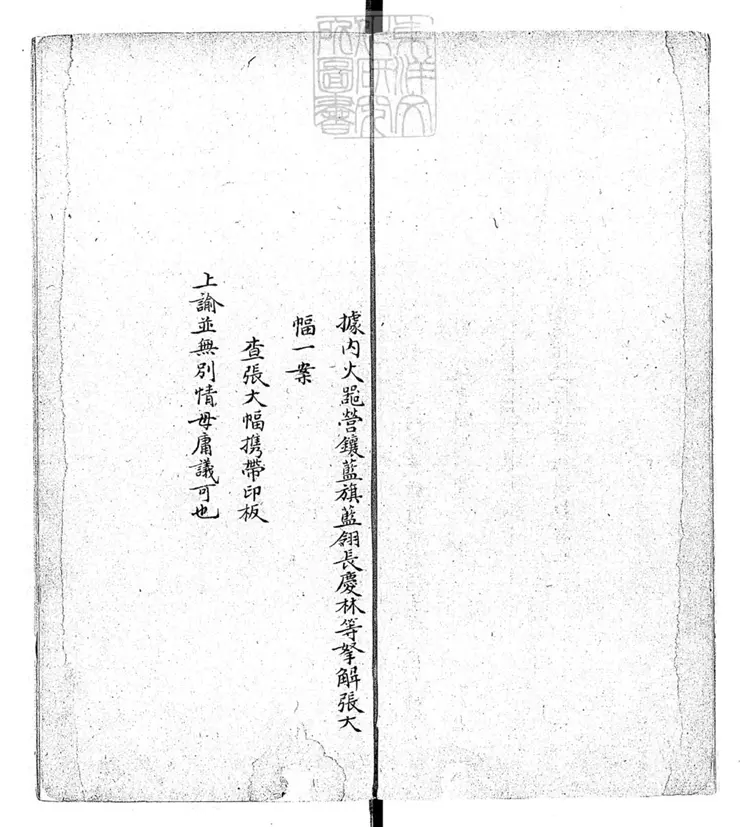 據内火噐營鑲藍旗藍翎長慶林等拏解張大
幅一案
查張大幅携帶印板
上諭並無別情毋庸議可也
東洋文
化研究
所圖書